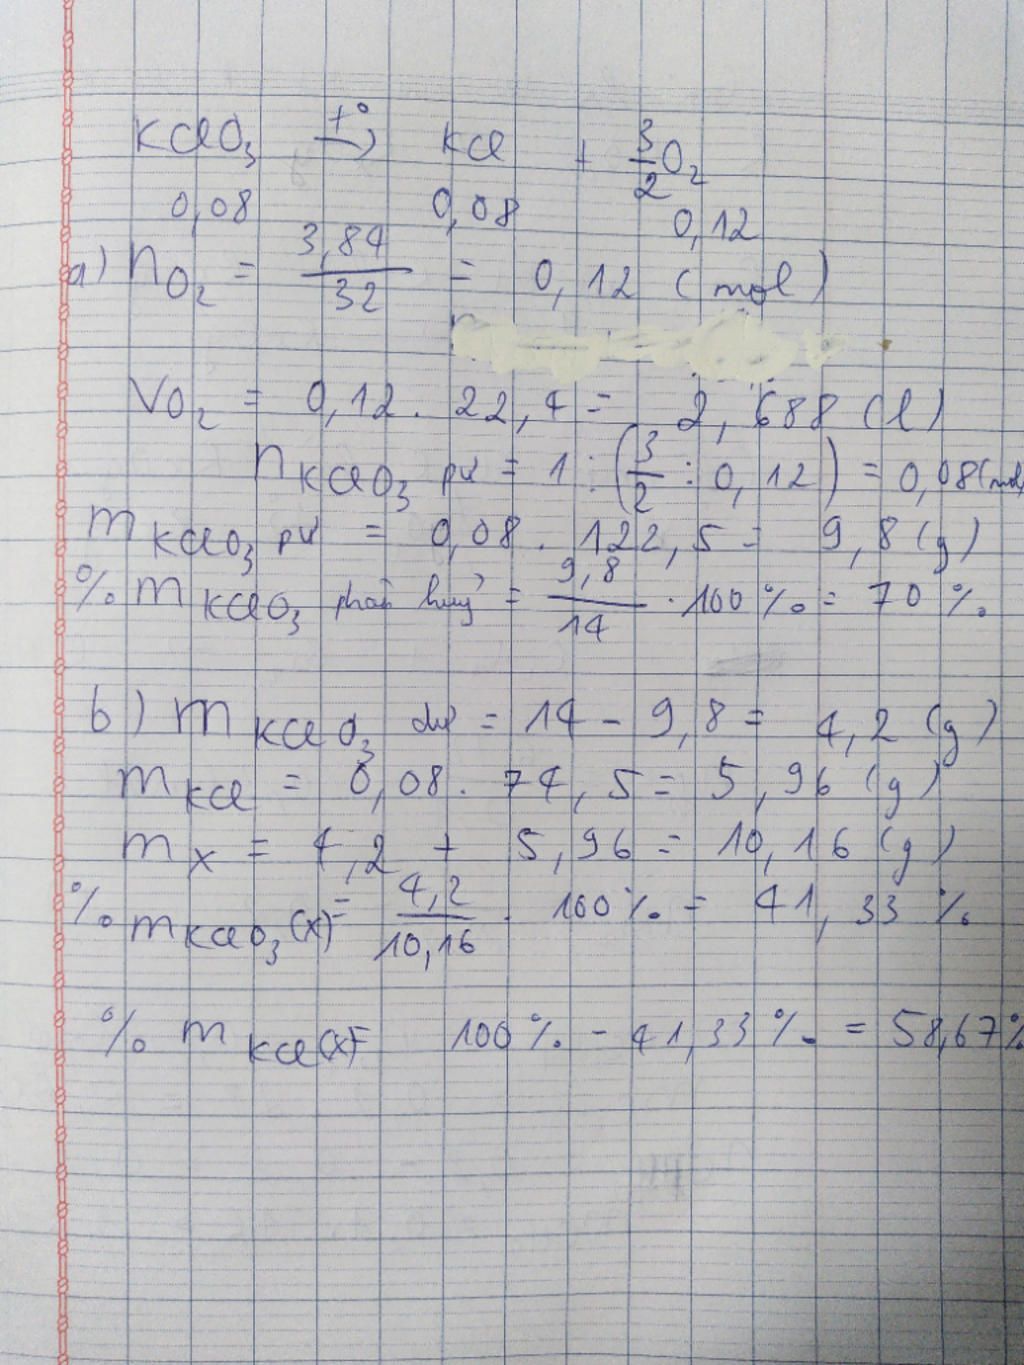 KClO₃ t° → KCl + 3/2 O₂
0,08 0,08 0,12
a) nO₂ = 3,84/32 = 0,12 (mol)
VO₂ = 0,12 . 22,4 = 2,688 (l)
nKClO₃ pứ = 1 : (3/2 : 0,12) = 0,08 (mol
mKClO₃ pứ = 0,08 . 122,5 = 9,8 (g)
% mKClO₃ phân huỷ = 9,8/14 . 100 % = 70 %
b) mKClO₃ dư = 14 - 9,8 = 4,2 (g)
mKCl = 0,08 . 74,5 = 5,96 (g)
mX = 4,2 + 5,96 = 10,16 (g)
% mKClO₃(X) = 4,2/10,16 . 100 % = 41,33 %
% mKCl(X) = 100 % - 41,33 % = 58,67 %